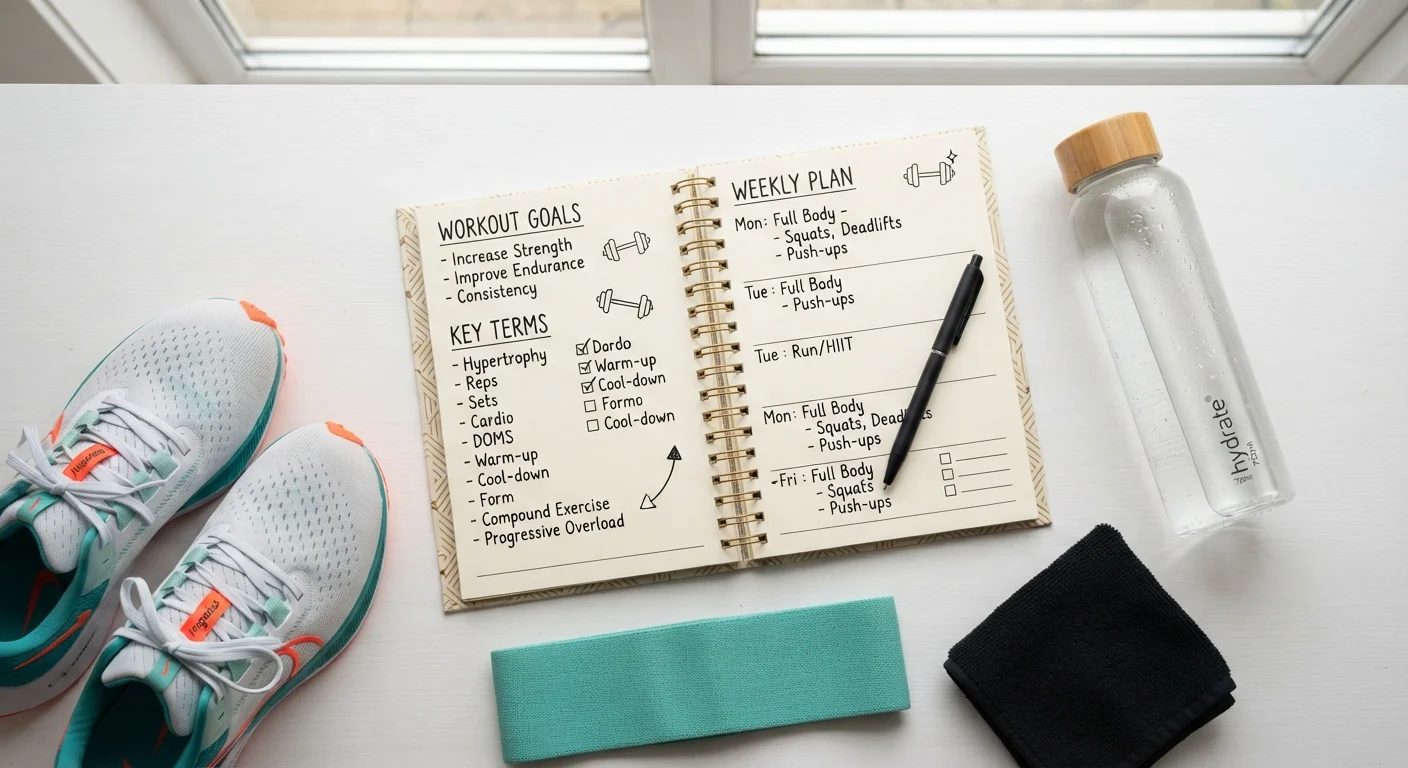 WORKOUT GOALS
- Increase Strength
- Improve Endurance
- Consistency
KEY TERMS
- Hypertrophy
- Reps
- Sets
- Cardio
- DOMS
- Warm-up
- Cool-down
- Form
- Compound Exercise
- Progressive Overload
Dardo
Warm-up
Cool-down
Formo
Cool-down
WEEKLY PLAN
Mon: Full Body -
- Squats, Deadlifts
- Push-ups
Tue : Full Body
- Push-ups
Tue : Run/HIIT
Mon: Full Body
- Squats, Deadlifts
- Push-ups
-Fri : Full Body
- Squats
- Push-ups
hydrate®